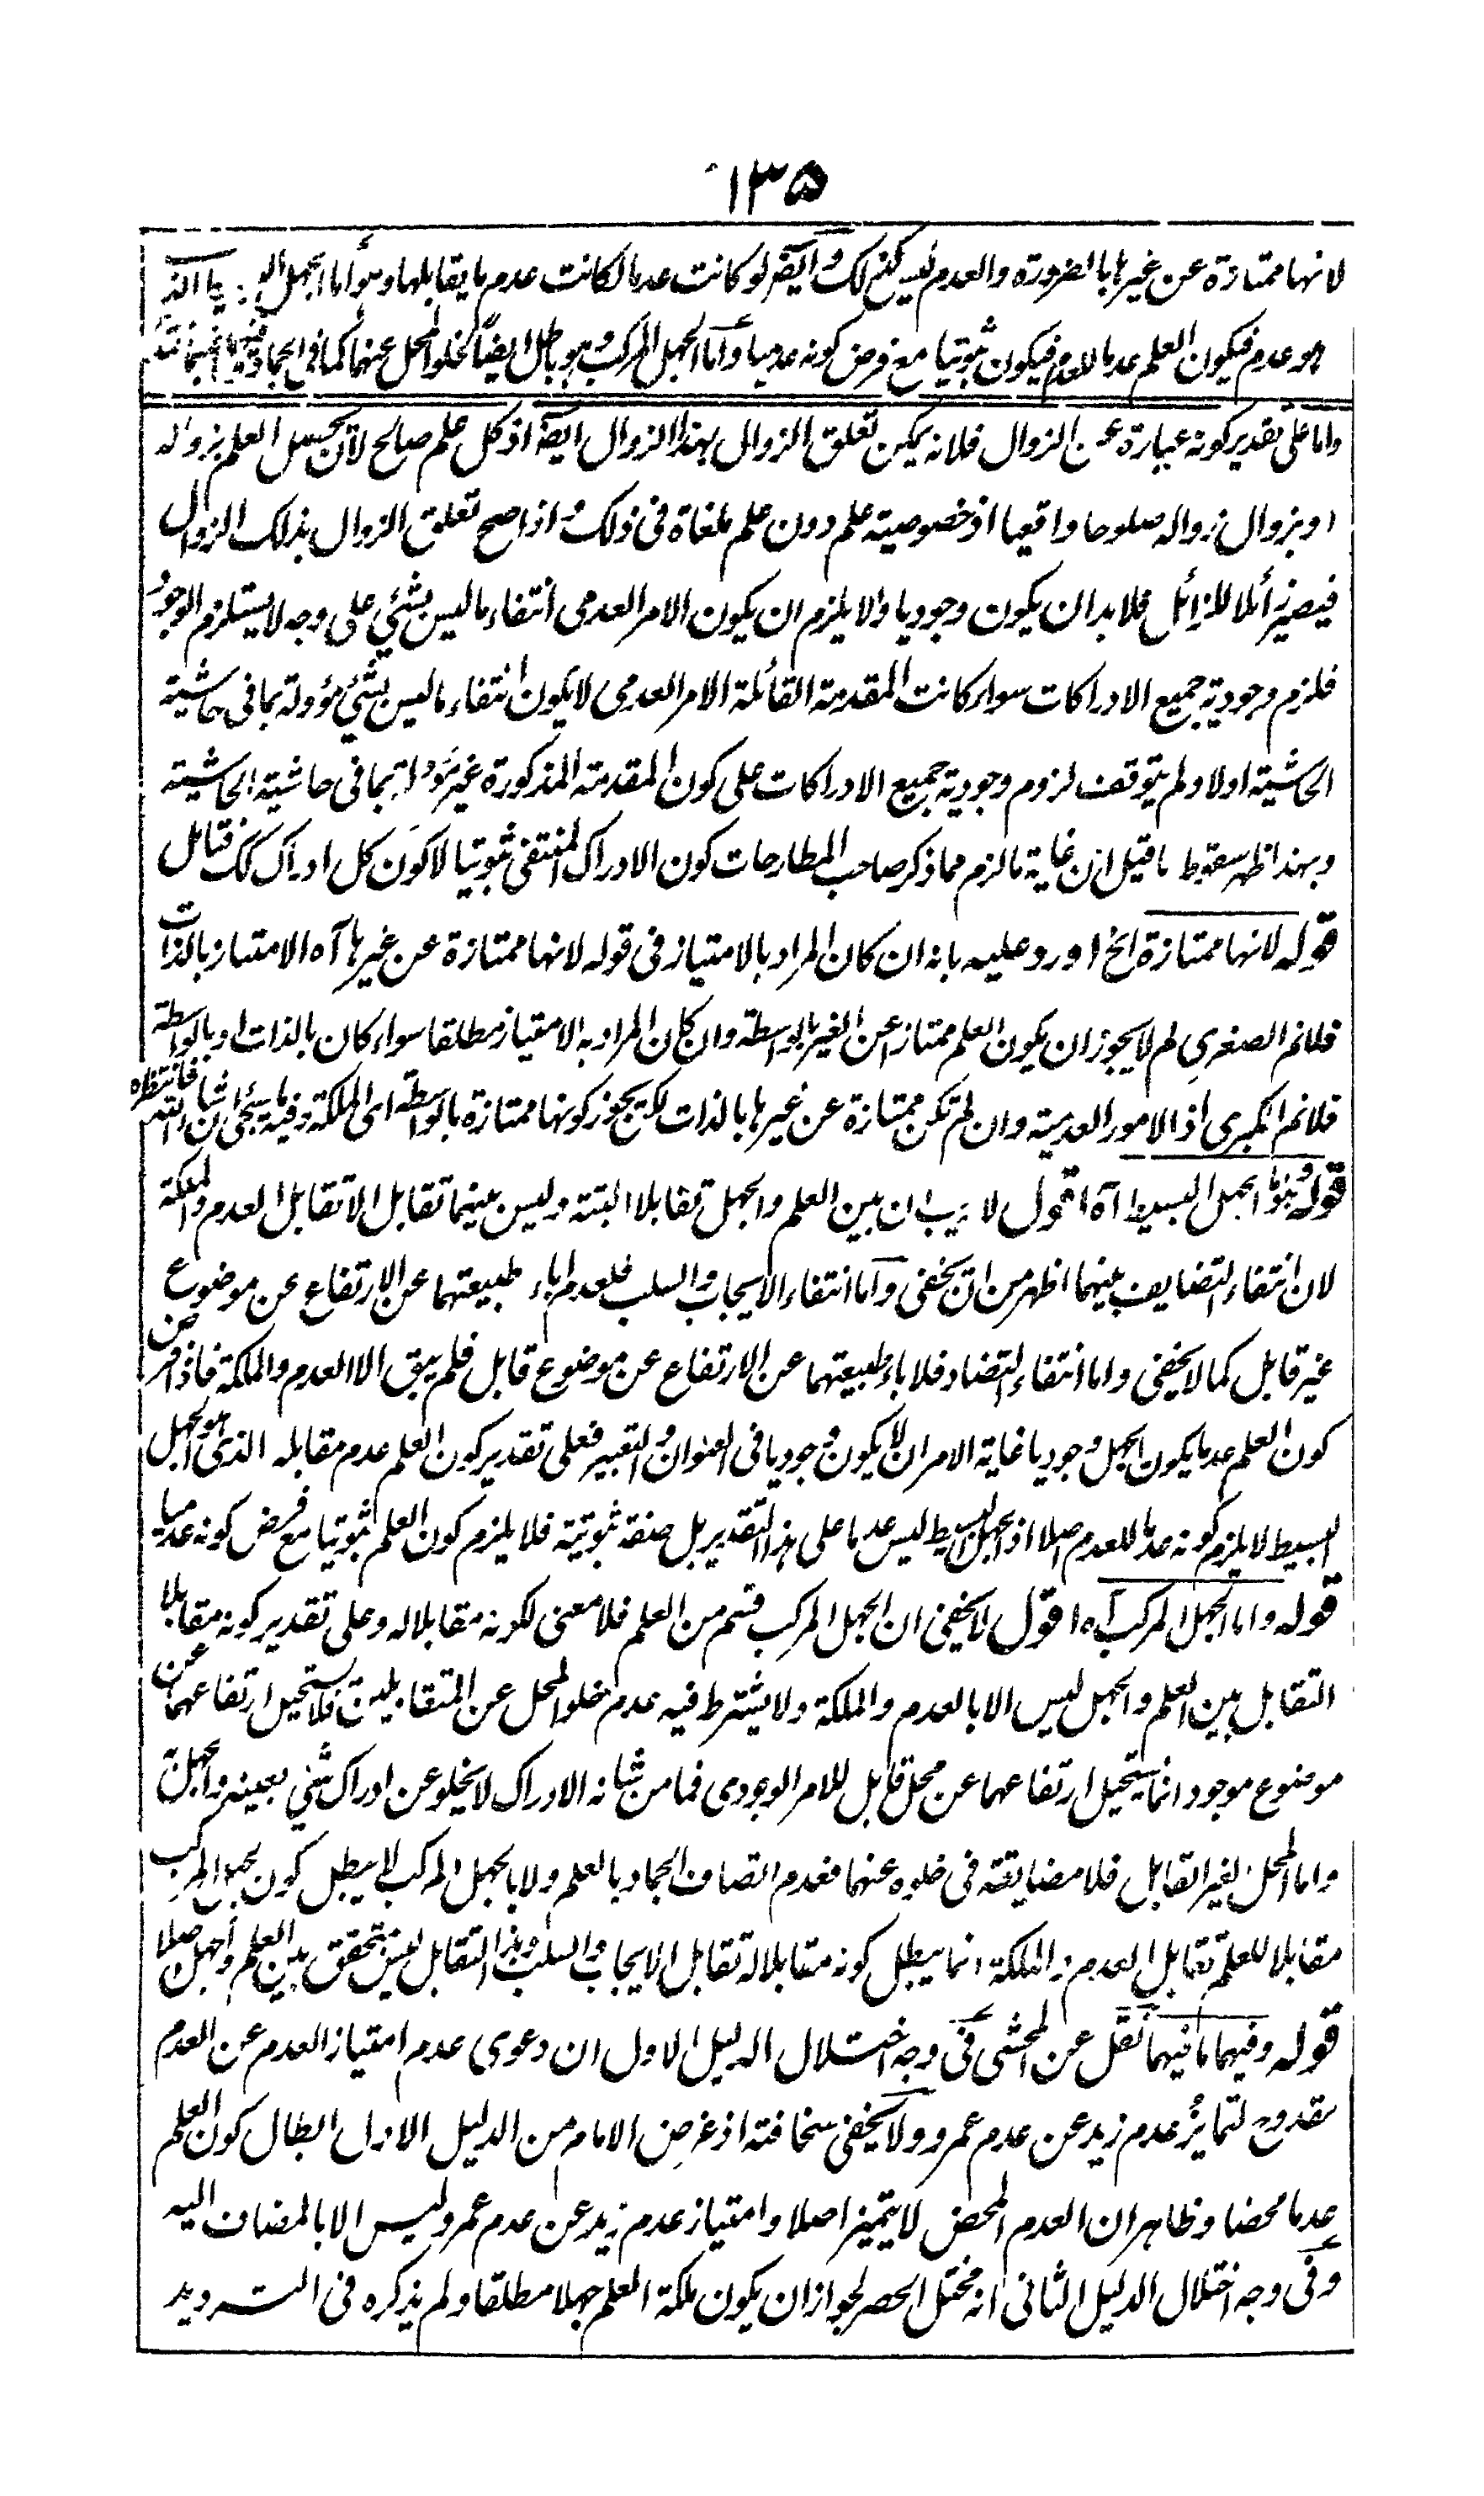 ١٣٥
لانها ممتازة عن غيرها بالضرورة والعدم ليس كذلك وايضا لو كانت عدما لكانت عدم ما يقابلها وهو اما الجهل الذى
هو عدم فيكون العلم عدما للعدم فيكون ثبوتيا مع فرض كونه عدميا واما الجهل المركب وهو باطل ايضا لخلو المحل عنهما كما فى الجماد وفيهما ما فيهما
واما على تقدير كونه عبارة عن الزوال فلانه يمكن تعلق الزوال بهذا الزوال ايضا اذ كل علم صالح لان يحصل العلم بزواله
او بزوال زواله صلوحا واقعيا اذ خصوصية علم دون علم ملغاة فى ذلك واذا صح تعلق الزوال بذلك الزوال
فيصير زائلا للزائل فلا بد ان يكون وجوديا والا يلزم ان يكون الامر العدمى انتفاء ما ليس بشئ على وجه لا يستلزم الوجود
فلزم وجودية جميع الادراكات سواء كانت المقدمة القائلة الامر العدمى لا يكون انتفاء ما ليس بشئ مؤولة بما فى حاشية
الحاشية اولا ولم يتوقف لزوم وجودية جميع الادراكات على كون المقدمة المذكورة غير مؤولة بما فى حاشية الحاشية
وبهذا ظهر سقوط ما قيل ان غاية ما لزم مما ذكر صاحب المطارحات كون الادراك المنتفى ثبوتيا لا كون كل ادراك كك فتامل
قوله لانها ممتازة الخ اورد عليه بانه ان كان المراد بالامتياز فى قوله لانها ممتازة عن غيرها آه الامتياز بالذات
فلانم الصغرى لم لا يجوز ان يكون العلم ممتازا عن الغير بالواسطة وان كان المراد به الامتياز مطلقا سواء كان بالذات او بالواسطة
فلانم الكبرى اذ الامور العدمية وان لم تكن ممتازة عن غيرها بالذات لكن يجوز كونها ممتازة بالواسطة اى الملكة وفيه ما سيجئ ان شاء الله فانتظره
قوله وهو اما الجهل البسيط آه اقول لا ريب ان بين العلم والجهل تقابلا البتة وليس بينهما تقابل الا تقابل العدم والملكة
لان انتفاء التضايف بينهما اظهر من ان يخفى واما انتفاء الايجاب والسلب فلعدم اباء طبيعتهما عن الارتفاع عن موضوع
غير قابل كما لا يخفى واما انتفاء التضاد فلاباء طبيعتهما عن الارتفاع عن موضوع قابل فلم يبق الا العدم والملكة فاذا فرض
كون العلم عدما يكون الجهل وجوديا غاية الامر ان لا يكون وجوديا فى العنوان والتعبير فعلى تقدير كون العلم عدم مقابله الذى هو الجهل
البسيط لا يلزم كونه عدما للعدم اصلا اذ الجهل البسيط ليس عدما على هذا التقدير بل صفة ثبوتية فلا يلزم كون العلم ثبوتيا مع فرض كونه عدميا
قوله واما الجهل المركب آه اقول لا يخفى ان الجهل المركب قسم من العلم فلا معنى لكونه مقابلا له وعلى تقدير كونه مقابلا
التقابل بين العلم والجهل ليس الا بالعدم والملكة ولا يشترط فيه عدم خلو المحل عن المتقابلين فلا يستحيل ارتفاعهما عن
موضوع موجود انما يستحيل ارتفاعهما عن محل قابل للامر الوجودى فما من شانه الادراك لا يخلو عن ادراك شئ بعينه والجهل
واما المحل الغير القابل فلا مضايقة فى خلوه عنهما فعدم اتصاف الجماد بالعلم ولا بالجهل المركب لا يبطل كون الجهل المركب
مقابلا للعلم تقابل العدم والملكة انما يبطل كونه مقابلا له تقابل الايجاب والسلب وهذا التقابل ليس بمتحقق بين العلم والجهل اصلا
قوله وفيهما ما فيهما نقل عن المحشى فى وجه اختلال الدليل الاول ان دعوى عدم امتياز العدم عن العدم
مقدوح لتمايز عدم زيد عن عدم عمرو ولا يخفى سخافته اذ غرض الامام من الدليل الاول ابطال كون العلم
عدما محضا وظاهر ان العدم المحض لا يتميز اصلا وامتياز عدم زيد عن عدم عمرو ليس الا بالمضاف اليه
وفى وجه اختلال الدليل الثانى انه مختل الحصر لجواز ان يكون ملكة العلم جهلا مطلقا ولم يذكره فى الترديد